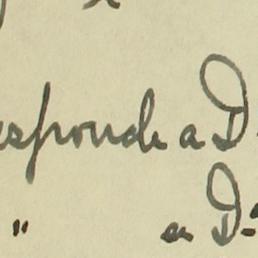 esponde a D.
" a D.ª